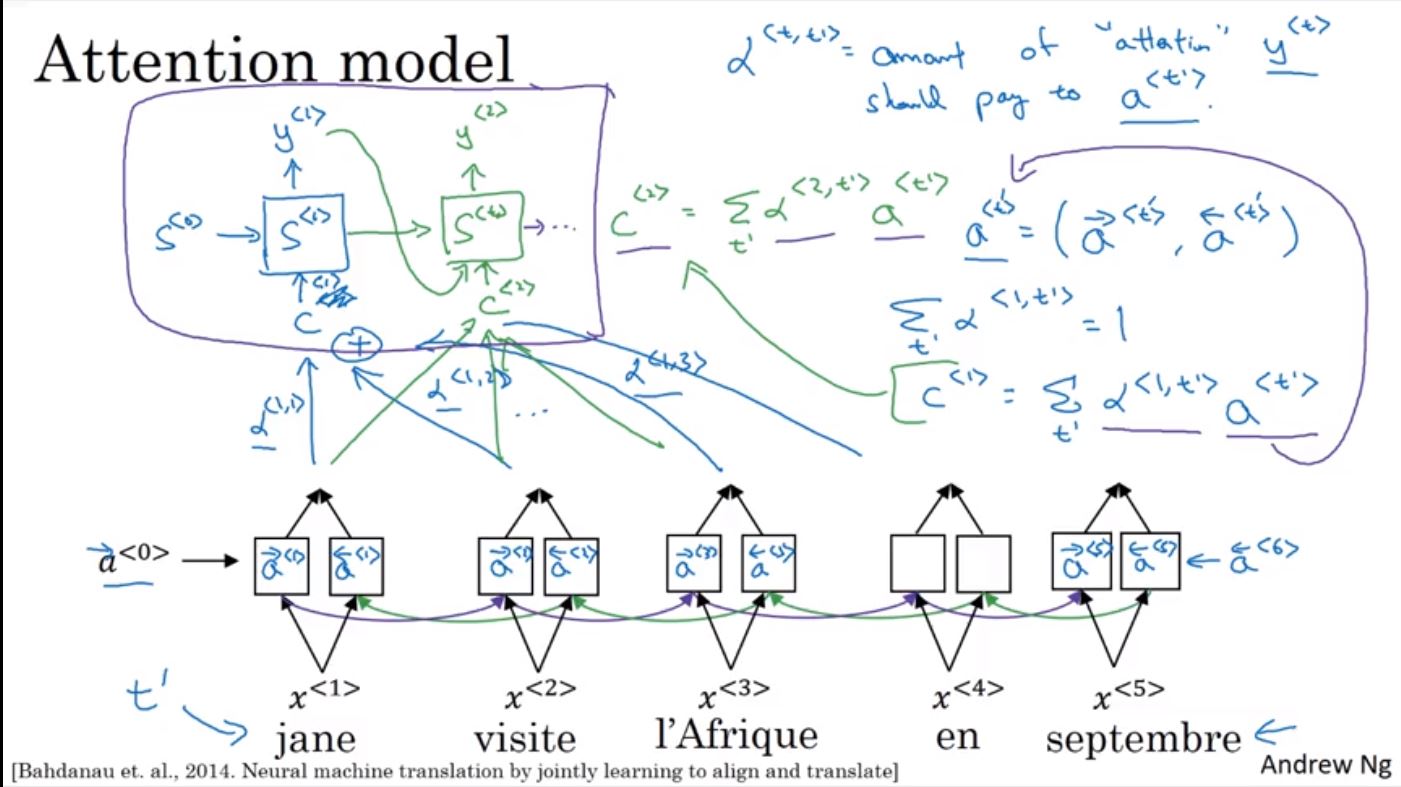 Attention model
α<t,t'> = amount of "attention" y<t>
should pay to a<t'>.
y<1> y<2>
S<0> → S<1> → S<2> → ...
C<1> C<2>
C<2> = Σt' α<2,t'> a<t'>
a<t'> = (a→<t'>, a←<t'>)
Σt' α<1,t'> = 1
C<1> = Σt' α<1,t'> a<t'>
+
α<1,1> α<1,2> ... α<1,3>
a→<0> → a→<1> a←<1> a→<2> a←<2> a→<3> a←<3> a→<5> a←<5> ← a←<6>
t' x<1> x<2> x<3> x<4> x<5>
jane visite l'Afrique en septembre ←
[Bahdanau et. al., 2014. Neural machine translation by jointly learning to align and translate]
Andrew Ng